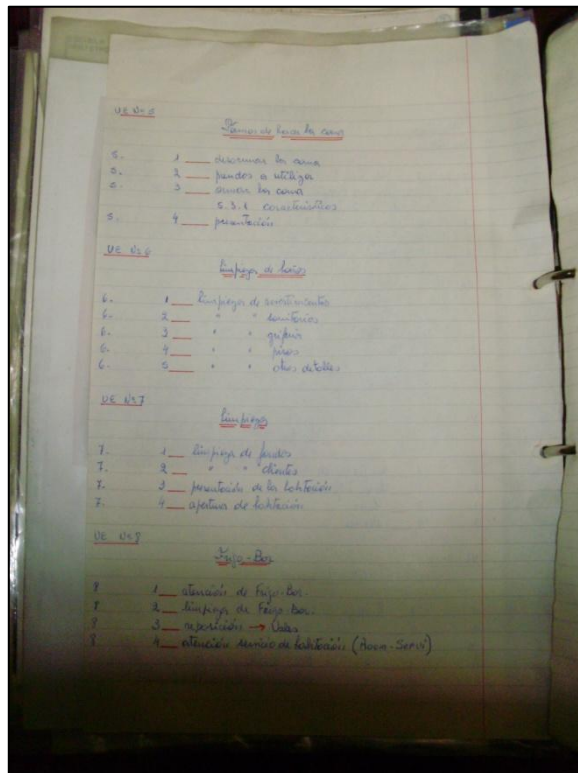 UE Nº 5
Formas de hacer las camas
5. 1 __ desarmar las camas
5. 2 __ prendas a utilizar
5. 3 __ armar las camas
5.3.1 características
5. 4 __ presentación
UE Nº 6
Limpieza de baños
6. 1 __ limpieza de revestimientos
6. 2 __ " " sanitarios
6. 3 __ " " grifería
6. 4 __ " " pisos
6. 5 __ " " otros detalles
UE Nº 7
Limpiezas
7. 1 __ limpieza de fondos
7. 2 __ " " clientes
7. 3 __ presentación de las habitación
7. 4 __ apertura de habitación
UE Nº 8
Frigo-Bar
8 1 __ atención de Frigo-Bar.
8 2 __ limpieza de Frigo-Bar.
8 3 __ reposición → Vales
8. 4 __ atención servicio de habitación (Room-Servi)